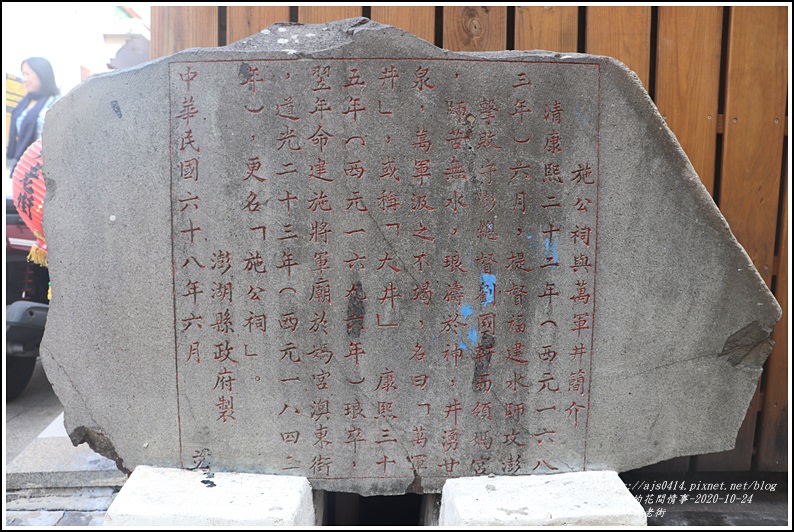 施公祠與萬軍井簡介
清康熙二十二年（西元一六八
三年）六月，提督福建水師攻澎
擊敗守澎總督劉國軒而領媽宮
，師苦無水，琅禱於神，井湧甘
泉，萬軍汲之不竭，名曰「萬軍
井」，或稱「大井」康熙三十
五年（西元一六九六年）琅卒，
翌年命建施將軍廟於媽宮澳東街
，道光二十三年（西元一八四三
年），更名「施公祠」。
澎湖縣政府製
中華民國六十八年六月
http://ajs0414.pixnet.net/blog
的花間情事-2020-10-24
老街